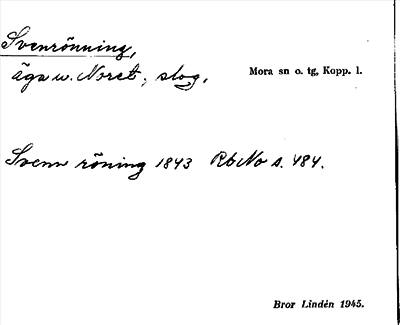 Svenrönning,
ägo u. Noret, slog,
Mora sn o. tg, Kopp. l.
Svenn röning 1843 RbNo s. 484.
Bror Lindén 1945.